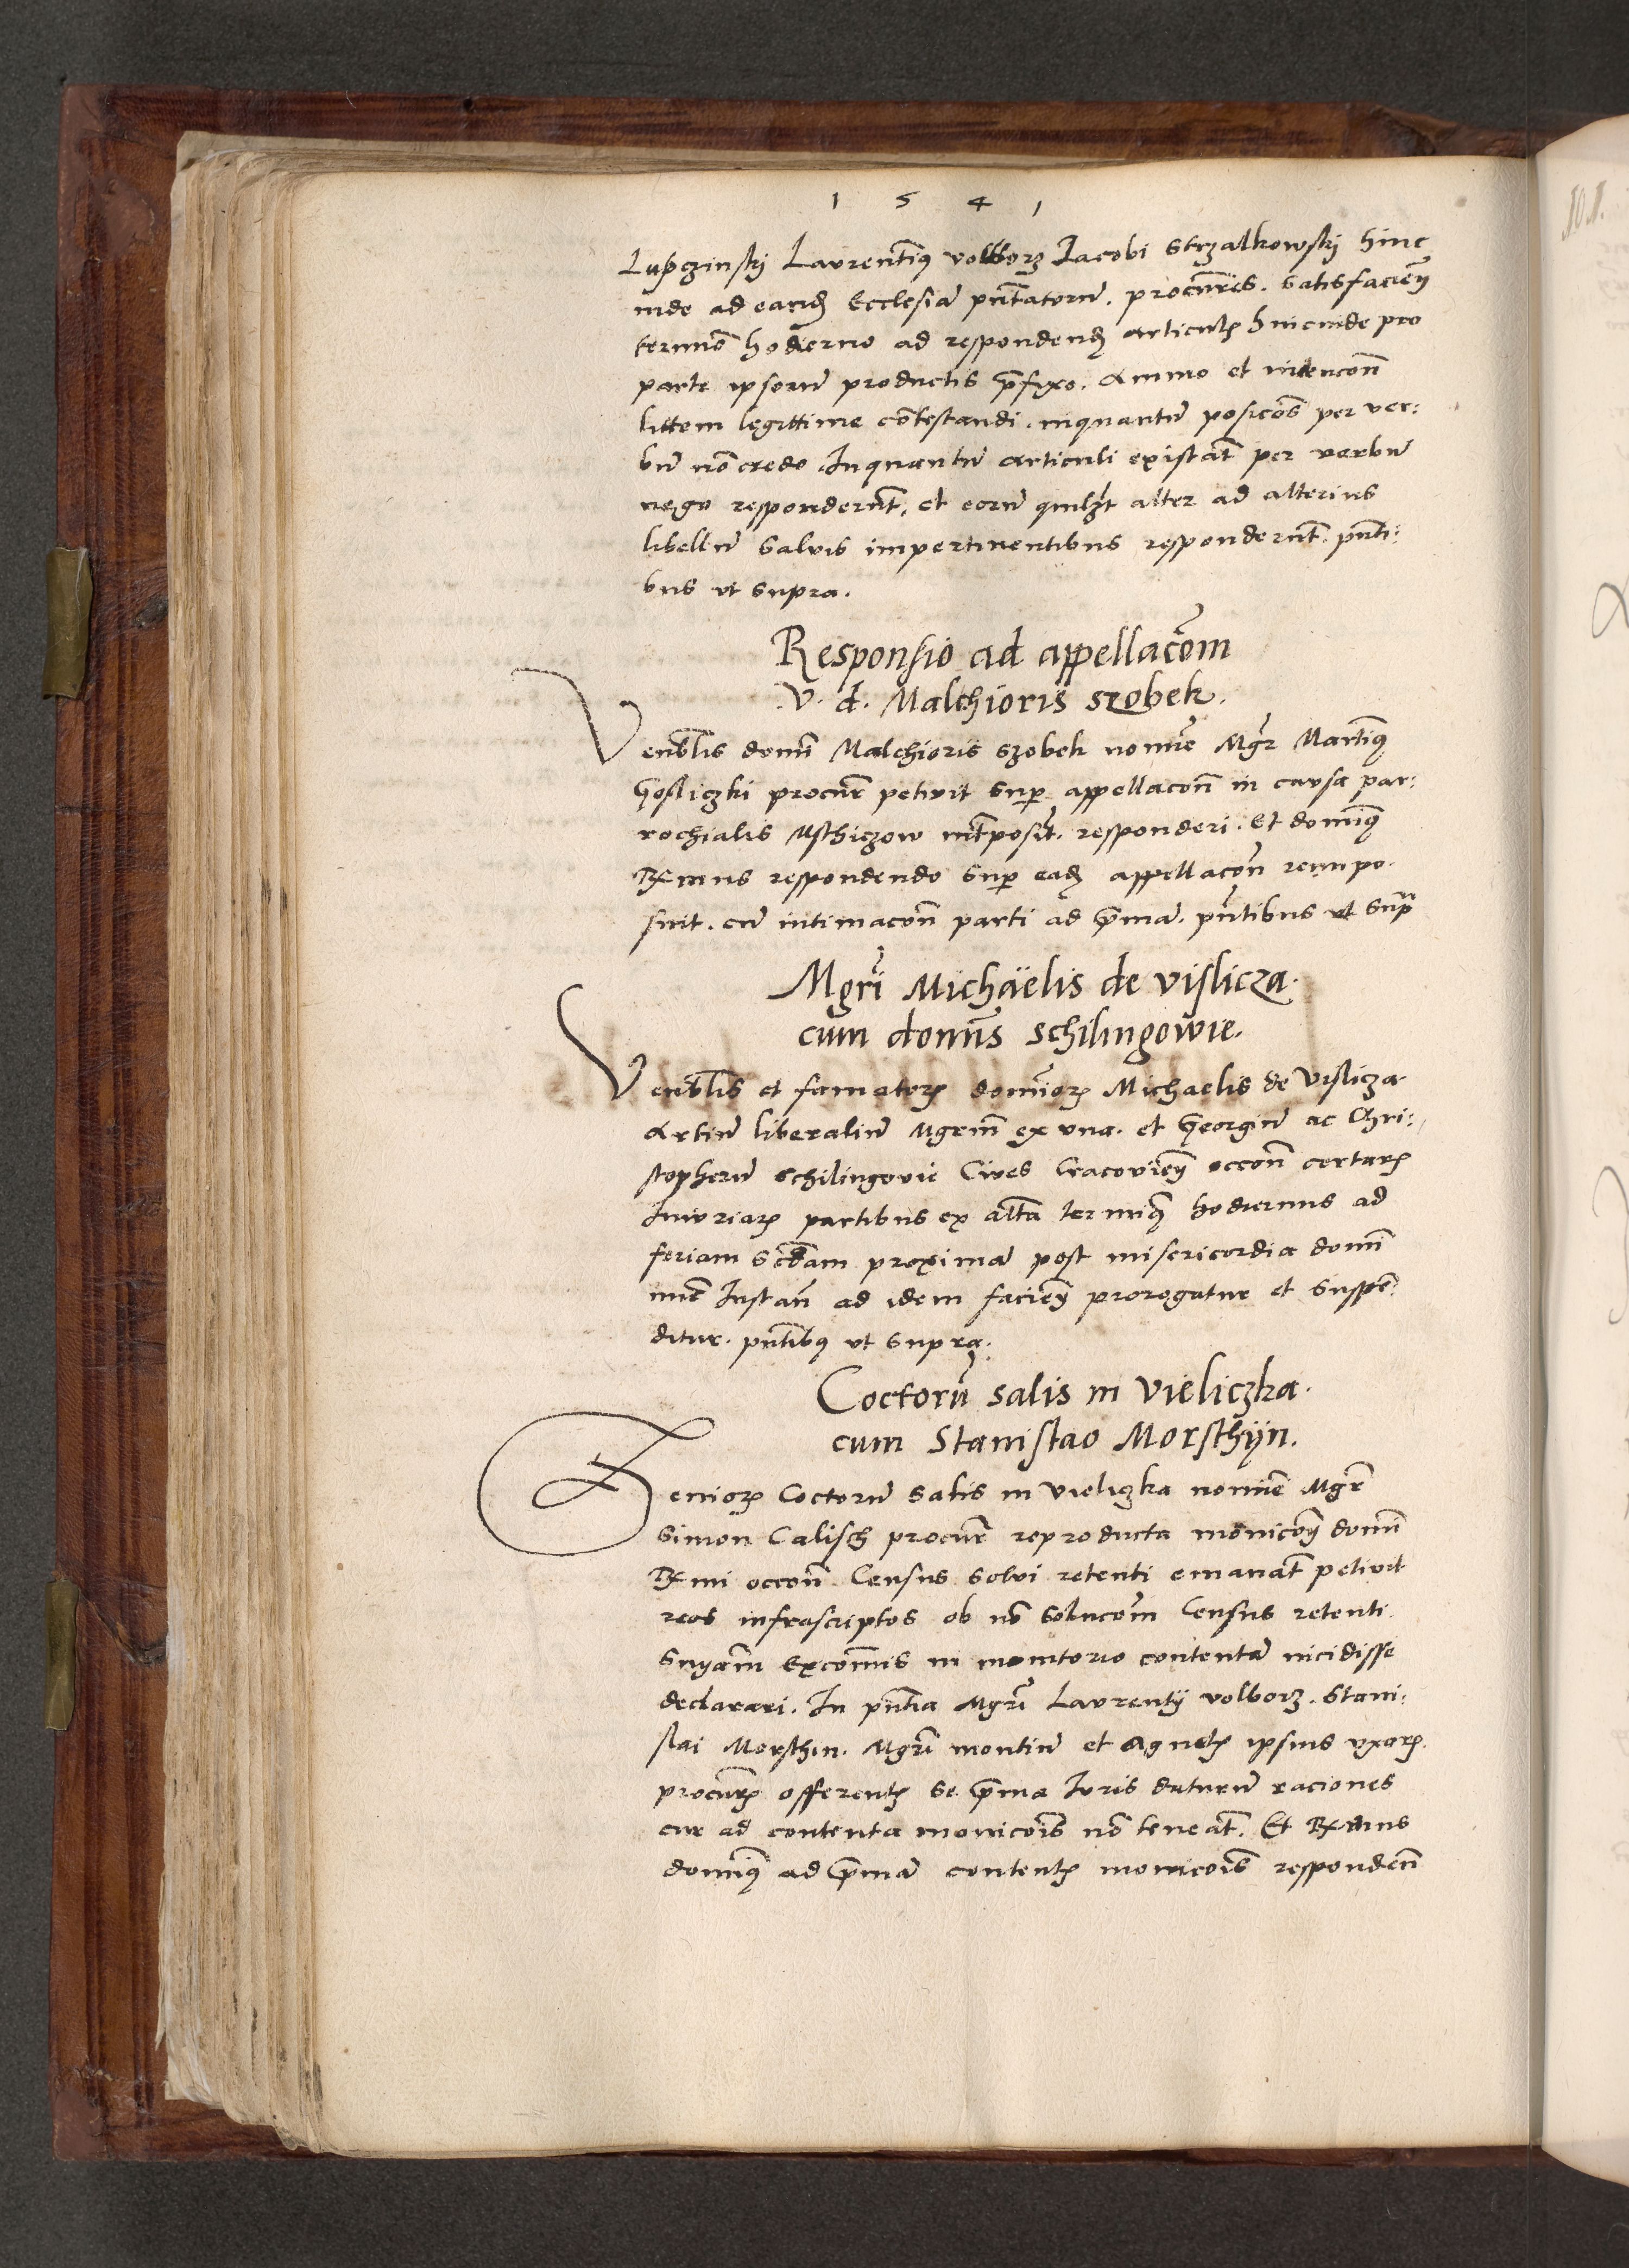 1 5 4 1
Lupczinskj Laurentiꝰ volborz Iacobi Strzalkowskj hinc
inde ad eandꝫ Ecclesiā pn̄tatorū. procūres. satisfacieñ
termīo hodierno ad respondendꝫ articulꝭ hincinde pro
parte ipsorū productis p̄fixo. Animo et intencoñ
littem legittime cōtestandi. inquantū posicōes per ver:
bū nō credo Inquantū articuli existāt per verbū
nego respondernt̄, et eorū quilꝫt alter ad alterius
libellū salvis impertinentibus respondernt̄. pn̄ti:
bus ut supra.
Responsio ad appellacōm
V. d. Malchioris szobek.
Venblīs domī Malchioris szobek nomīe Mgr̄ Martinꝰ
Gosliczki procūr petivit sup̱ appellacoñ in causa par:
rochialis Msthiczow int̄posit̄. responderi. Et dominꝰ
Rx̄mus respondendo sup̱ eadꝫ appellacoñ reimpo
suit. cū intimacoñ parti ad p̄mā. pn̄tibus ut supᵃ
Mgrī Michäelis de vislicza.
cum domīs schilingowie.
Venblīs et famatorꝝ domīorꝝ Michaelis de Vislicza
Artiū liberaliū Mgrm̄ ex una. et Georgiū ac Chri:
stopherū schilingovie Cives Cracovieñ occoñ certarꝝ
Iniuriarꝝ partibus ex altā terminꝰ hodiernus ad
feriam scd̄am proximā post misericordia domī
nūc Instañ ad idem facieñ prorogatur et suspē:
ditur. pn̄tibꝰ ut supra.
Coctorū salis in Vieliczka.
cum Stanislao Morsthÿn.
Seniorꝝ Coctorū salis in vieliczka nomīe Mgr̄
Simon Calisch procūr reproducta monicoñ domī
Rx̄mi occoñ Census solvi retenti emanat̄ petivit
reos infrascriptos ob nō solucōm Census retenti
snīam excomīs in monitorio contentā incidisse
declarari. In pn̄tia Mgrī Laurentÿ volborz. Stani:
slai Morsthin. Mgrī montiū et Agnetꝭ ipsius uxorꝭ.
procurꝭ offerentꝭ se p̄ma Iuris daturū raciones
cur ad contenta monicōis nō teneāt. Et Rx̄mus
dominꝰ ad p̄mā contentꝭ monicōis respondeñ